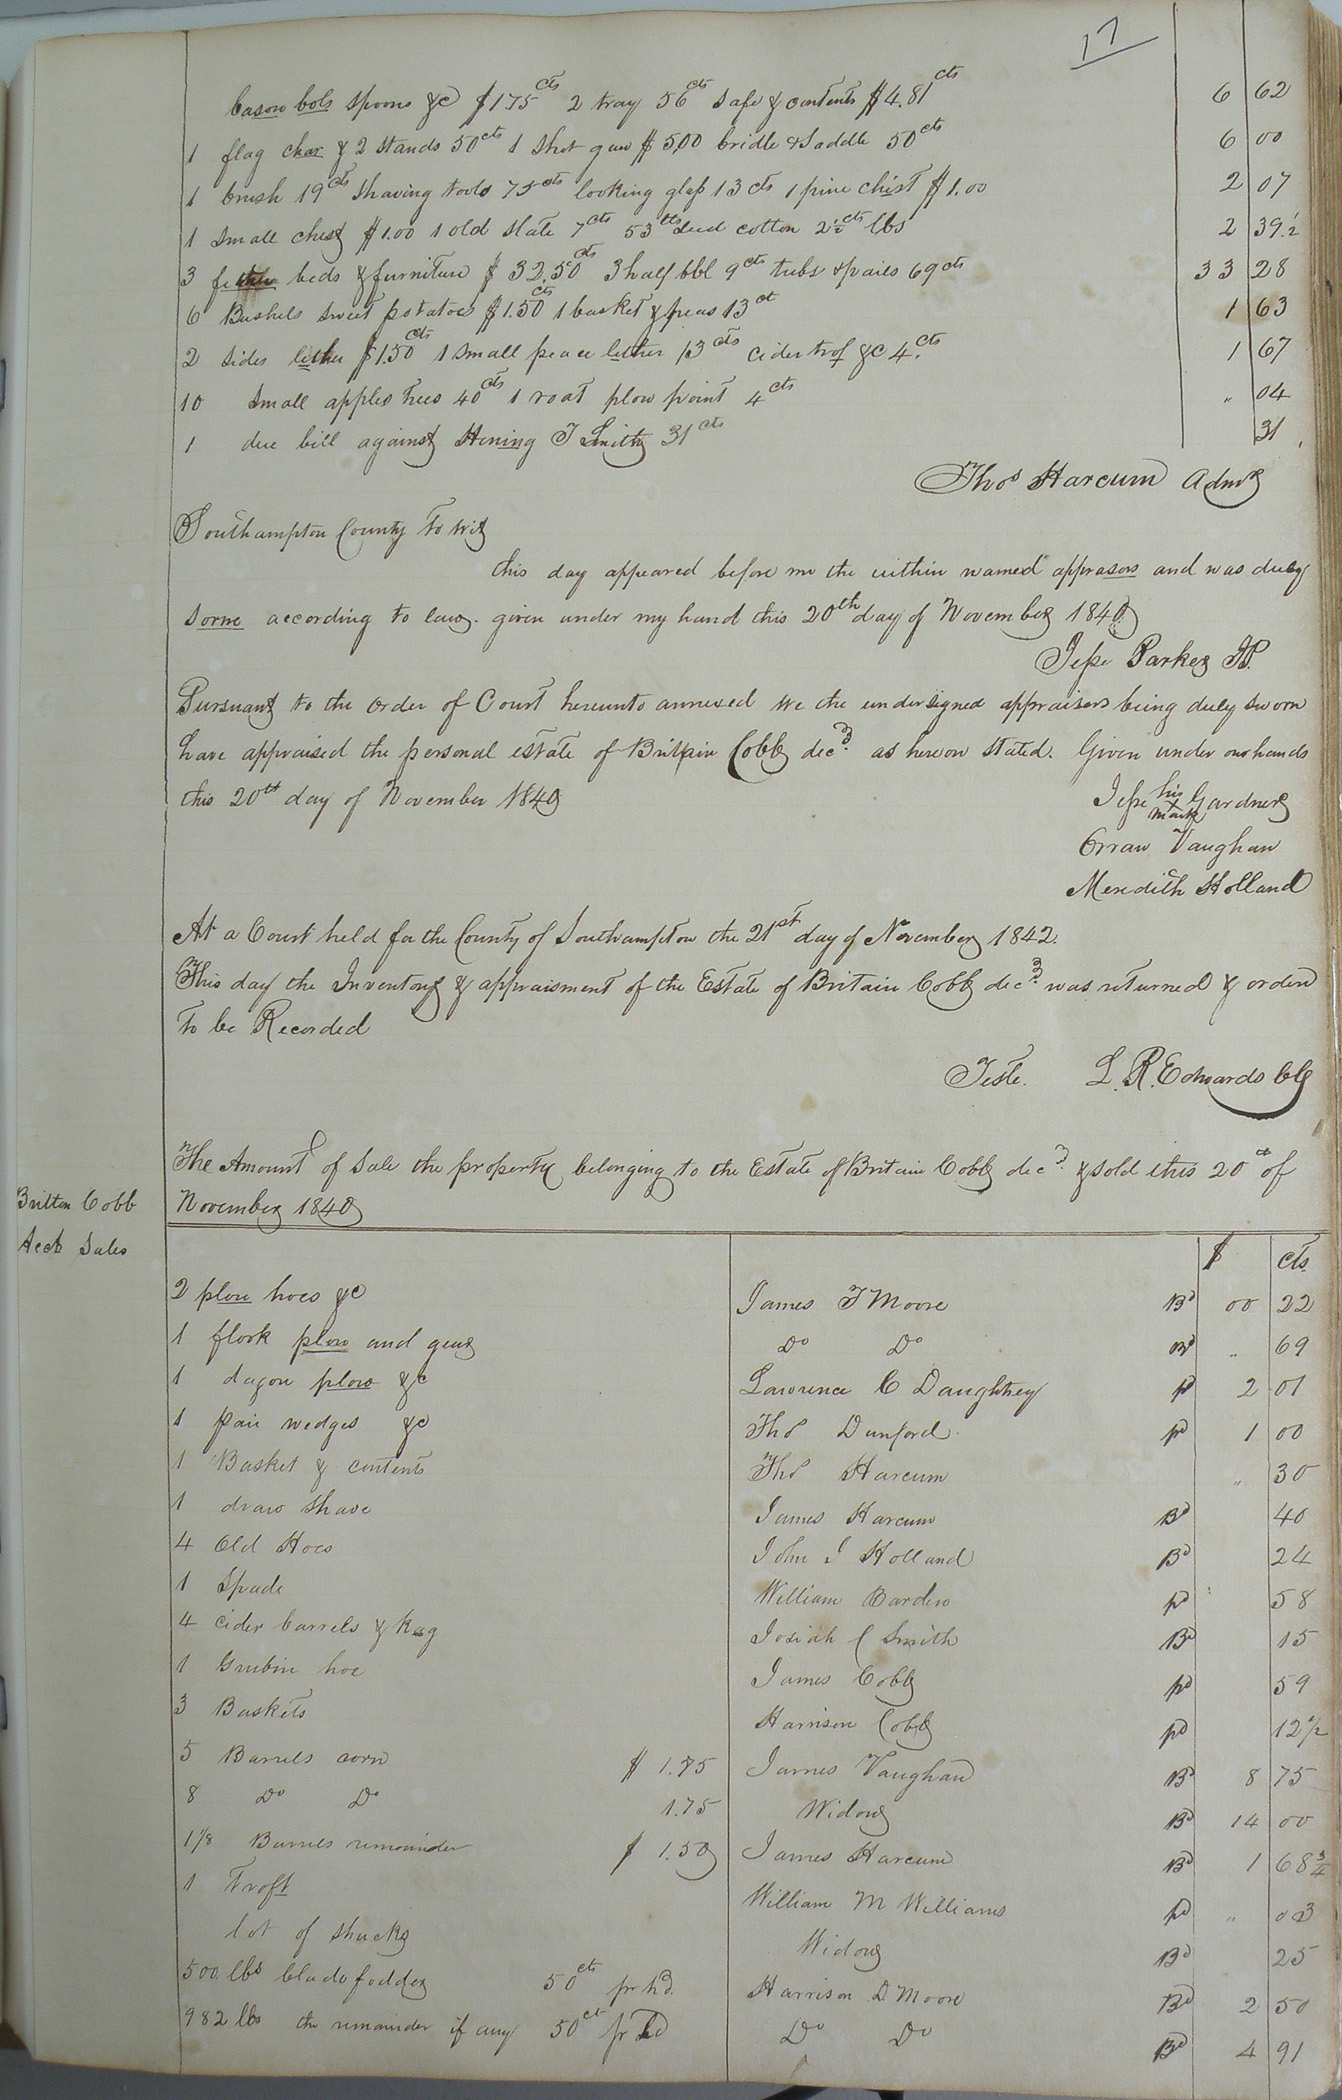 17
bason bols spoons &c $1.75cts 2 tray 56cts safe & contents $4.81cts 6 62
1 flag chair & 2 stands 50cts 1 shot gun $5,00 bridle & Saddle 50cts 6 00
1 brush 19cts shaving tools 75cts looking glass 13 cts 1 pine chist $1.00 2 07
1 small chest $1.00 1 old slate 7cts 53 lbs seed cotton 2½cts lbs 2 39.½
3 feather beds & furniture $32.50cts 3 half bbl 9cts tubs & pails 69cts 33 28
6 Bushels sweet potatoes $1.50cts 1 basket & peas 13ct 1 63
2 sides lether $1.50cts 1 small peace lether 13cts cider trof &c 4.cts 1 67
10 small apples trees 40cts 1 root plow point 4cts " 04
1 due bill against Hening T Smith 31cts 31
Thos Harcum Admr
Southampton County To wit
this day appeared before me the within named apprasors and was duly
sorne according to law. given under my hand this 20th day of November 1840
Jesse Parker JP.
Pursuant to the order of Court hereunto annexed we the undersigned appraisers being duly sworn
have appraised the personal estate of Britain Cobb decd. as hereon stated. Given under our hands
this 20th day of November 1840
Jesse his x mark Gardner
Orran Vaughan
Meredith Holland
At a Court held for the County of Southampton the 21st day of November 1842.
This day the Inventory & appraisment of the Estate of Britain Cobb decd. was returned & orderd
To be Recorded
Teste. L. R. Edwards Clk
The Amount of Sale the property belonging to the Estate of Britain Cobb decd. & sold this 20th of
November 1840
Britton Cobb
Acct Sales
$ cts.
2 plow hoes &c James T Moore Bd 00 22
1 flook plow and gear Do Do Bd " 69
1 dagon plow &c Lawrence C Daughtrey pd 2 01
1 pair wedges &c Thos Dunford pd 1 00
1 Basket & contents Thos Harcum " 30
1 draw shave James Harcum Bd 40
4 Old Hoes John J Holland Bd 24
1 Spade William Barden pd 58
4 cider barrels & Kag Josiah C Smith Bd 15
1 Grubin hoe James Cobb pd 59
3 Baskets Harrison Cobb pd 12½
5 Barrels corn $ 1.75 James Vaughan Bd 8 75
8 Do Do 1.75 Widow Bd 14 00
1 1/8 Barrels remainder $ 1.50 James Harcum Bd 1 68¾
1 Troft William M Williams pd " 03
lot of shucks Widow Bd 25
500 lbs blade fodder 50ct pr hd. Harrison D Moore Bd 2 50
982 lbs the remainder if any 50ct pr hd Do Do Bd 4 91